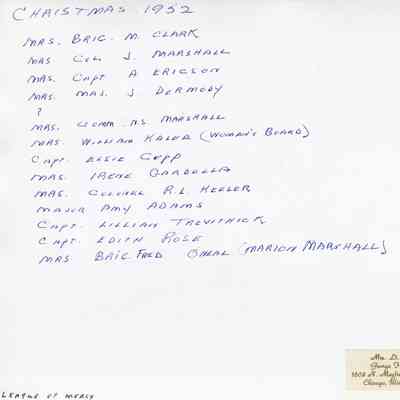 CHRISTMAS 1952
MRS. BRIG. M. CLARK
MRS. COL J. MARSHALL
MRS. CAPT A ERICSON
MRS. MAJ. J. DERMODY
?
MRS. COMM. N.S. MARSHALL
MRS. WILLIAM (WOMAN'S BOARD)
CAPT. ELSIE
MRS. IRENE
MRS. COLONEL R.L. KEELER
MAJOR AMY ADAMS
CAPT. LILLIAN TREVITHICK
CAPT. EDITH ROSE
MRS BRIG FRED ONEAL (MARION MARSHALL)
Mrs. D.
George
1802 N.
Chicago,
LEAGUE OF MERCY